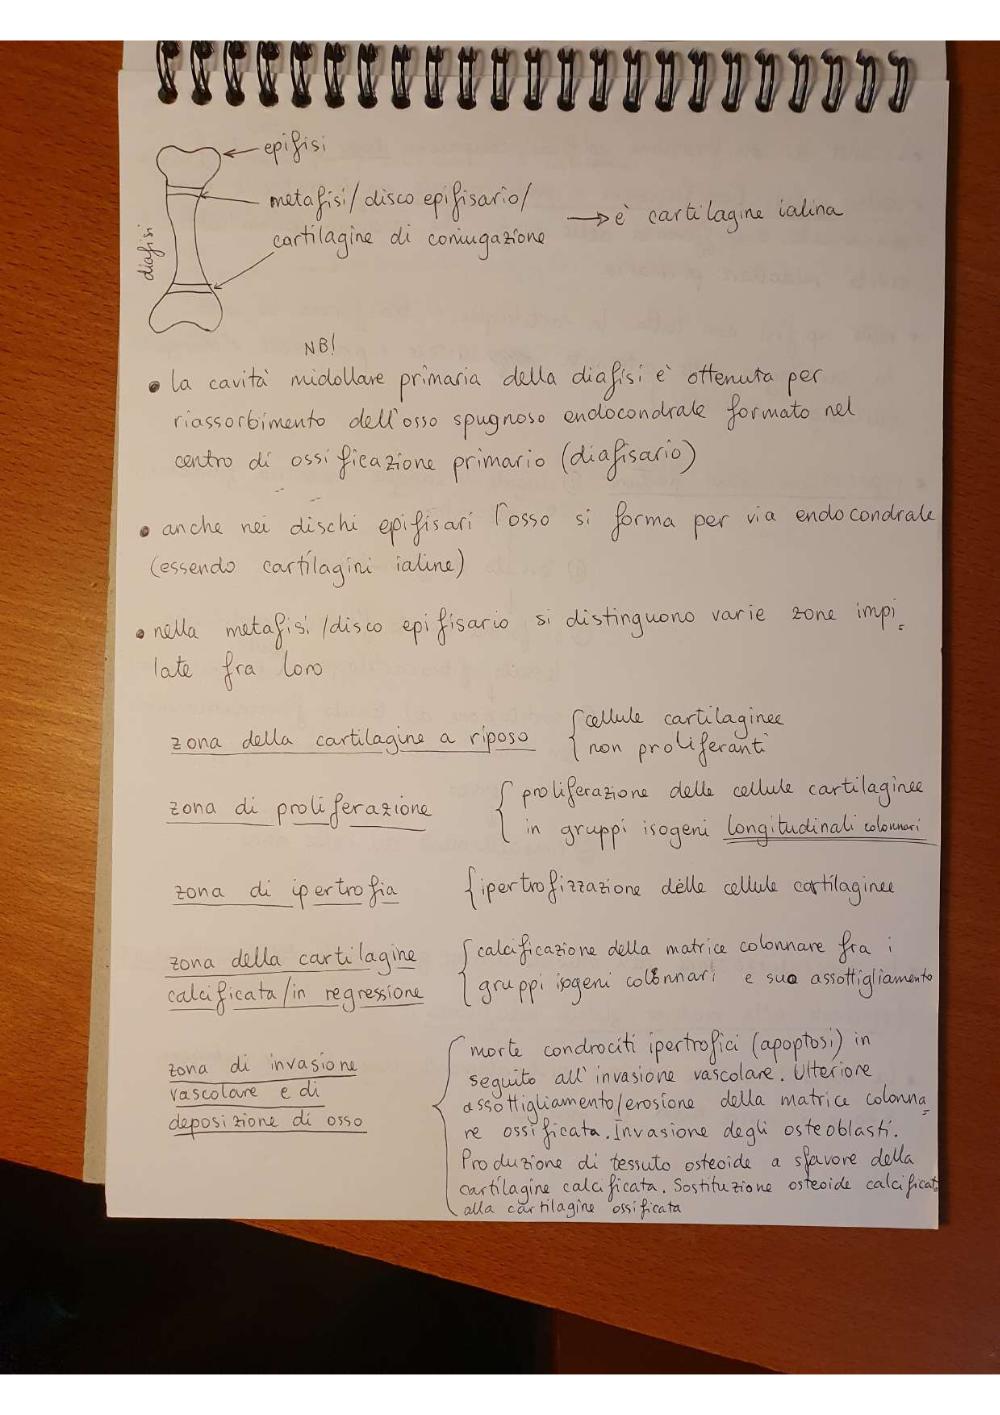 epifisi
metafisi/disco epifisario/
cartilagine di coniugazione
→ è cartilagine ialina
diafisi
NB!
• la cavità midollare primaria della diafisi è ottenuta per
riassorbimento dell'osso spugnoso endocondrale formato nel
centro di ossificazione primario (diafisario)
• anche nei dischi epifisari l'osso si forma per via endocondrale
(essendo cartilagini ialine)
• nella metafisi/disco epifisario si distinguono varie zone impi=
late fra loro
zona della cartilagine a riposo
{cellule cartilaginee
non proliferanti
zona di proliferazione
{proliferazione delle cellule cartilaginee
in gruppi isogeni longitudinali colonnari
zona di ipertrofia
{ipertrofizzazione delle cellule cartilaginee
zona della cartilagine
calcificata/in regressione
{calcificazione della matrice colonnare fra i
gruppi isogeni colonnari e suo assottigliamento
zona di invasione
vascolare e di
deposizione di osso
{morte condrociti ipertrofici (apoptosi) in
seguito all'invasione vascolare. Ulteriore
assottigliamento/erosione della matrice colonna=
re ossificata. Invasione degli osteoblasti.
Produzione di tessuto osteoide a sfavore della
cartilagine calcificata. Sostituzione osteoide calcificat
alla cartilagine ossificata